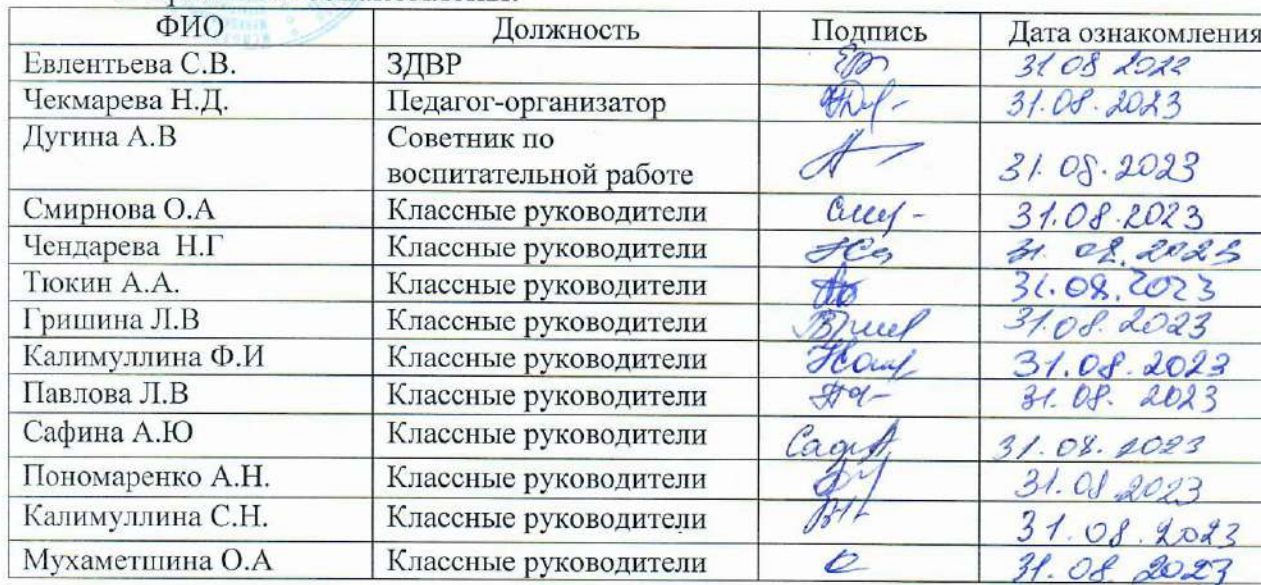 ФИО Должность Подпись Дата ознакомления
Евлентьева С.В. ЗДВР 31 08 2022
Чекмарева Н.Д. Педагог-организатор 31.08.2023
Дугина А.В Советник по
воспитательной работе 31.08.2023
Смирнова О.А Классные руководители 31.08.2023
Чендарева Н.Г Классные руководители 31.08.2023
Тюкин А.А. Классные руководители 31.08.2023
Гришина Л.В Классные руководители 31.08.2023
Калимуллина Ф.И Классные руководители 31.08.2023
Павлова Л.В Классные руководители 31.08.2023
Сафина А.Ю Классные руководители 31.08.2023
Пономаренко А.Н. Классные руководители 31.08.2023
Калимуллина С.Н. Классные руководители 31.08.2023
Мухаметшина О.А Классные руководители 31.08.2023